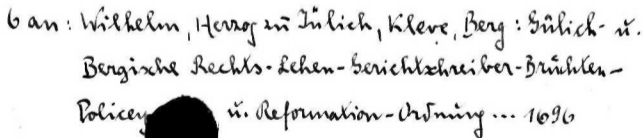 6 an: Wilhelm, Herzog zu Jülich, Kleve, Berg: Gülich- u.
Bergische Rechts-Lehen-Gerichtschreiber-Brüchten-
Policey u. Reformation-Ordnung ... 1696